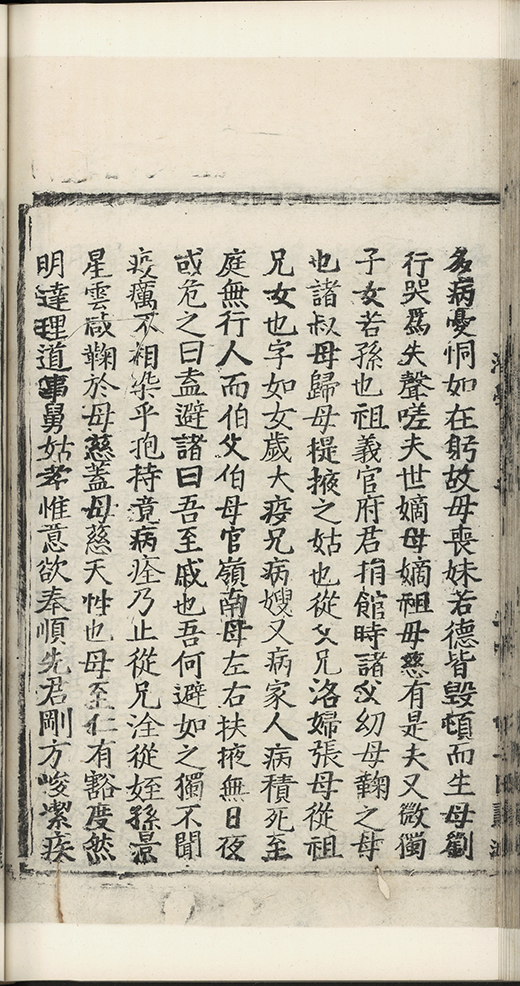 多病憂恫如在躬故母喪妹若德皆毀頓而生母劉
行哭爲失聲嗟夫世嫡母嫡祖母慈有是夫又微獨
子女若孫也祖義官府君捐館時諸父幼母鞠之母
也諸叔母歸母提掖之姑也從父兄洛婦張母從祖
兄女也字如女歲大疫兄病嫂又病家人病積死至
庭無行人而伯父伯母官嶺南母左右扶掖無日夜
或危之曰盍避諸曰吾至戚也吾何避如之獨不聞
疫癘不相染乎抱持竟病痊乃止從兄洤從姪孫濅
星雲咸鞠於母慈蓋母慈天性也母至仁有豁度然
明達理道事舅姑孝惟意欲奉順先君剛方峻潔疾